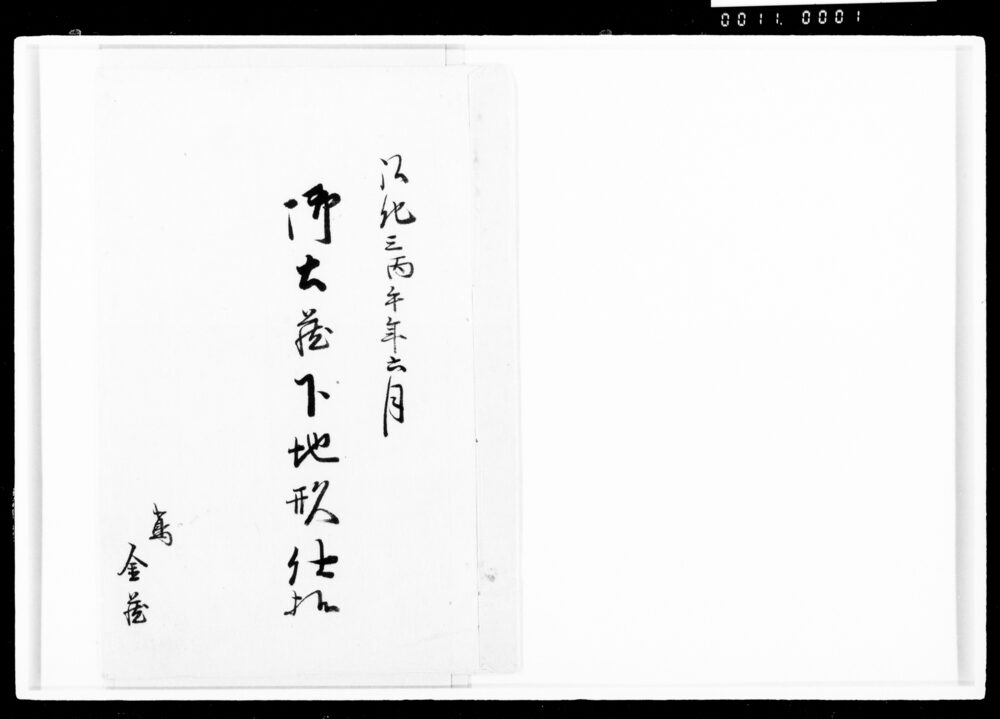 0011.0001
弘化三丙午年六月
御土蔵下地形仕拂
鳶
金蔵